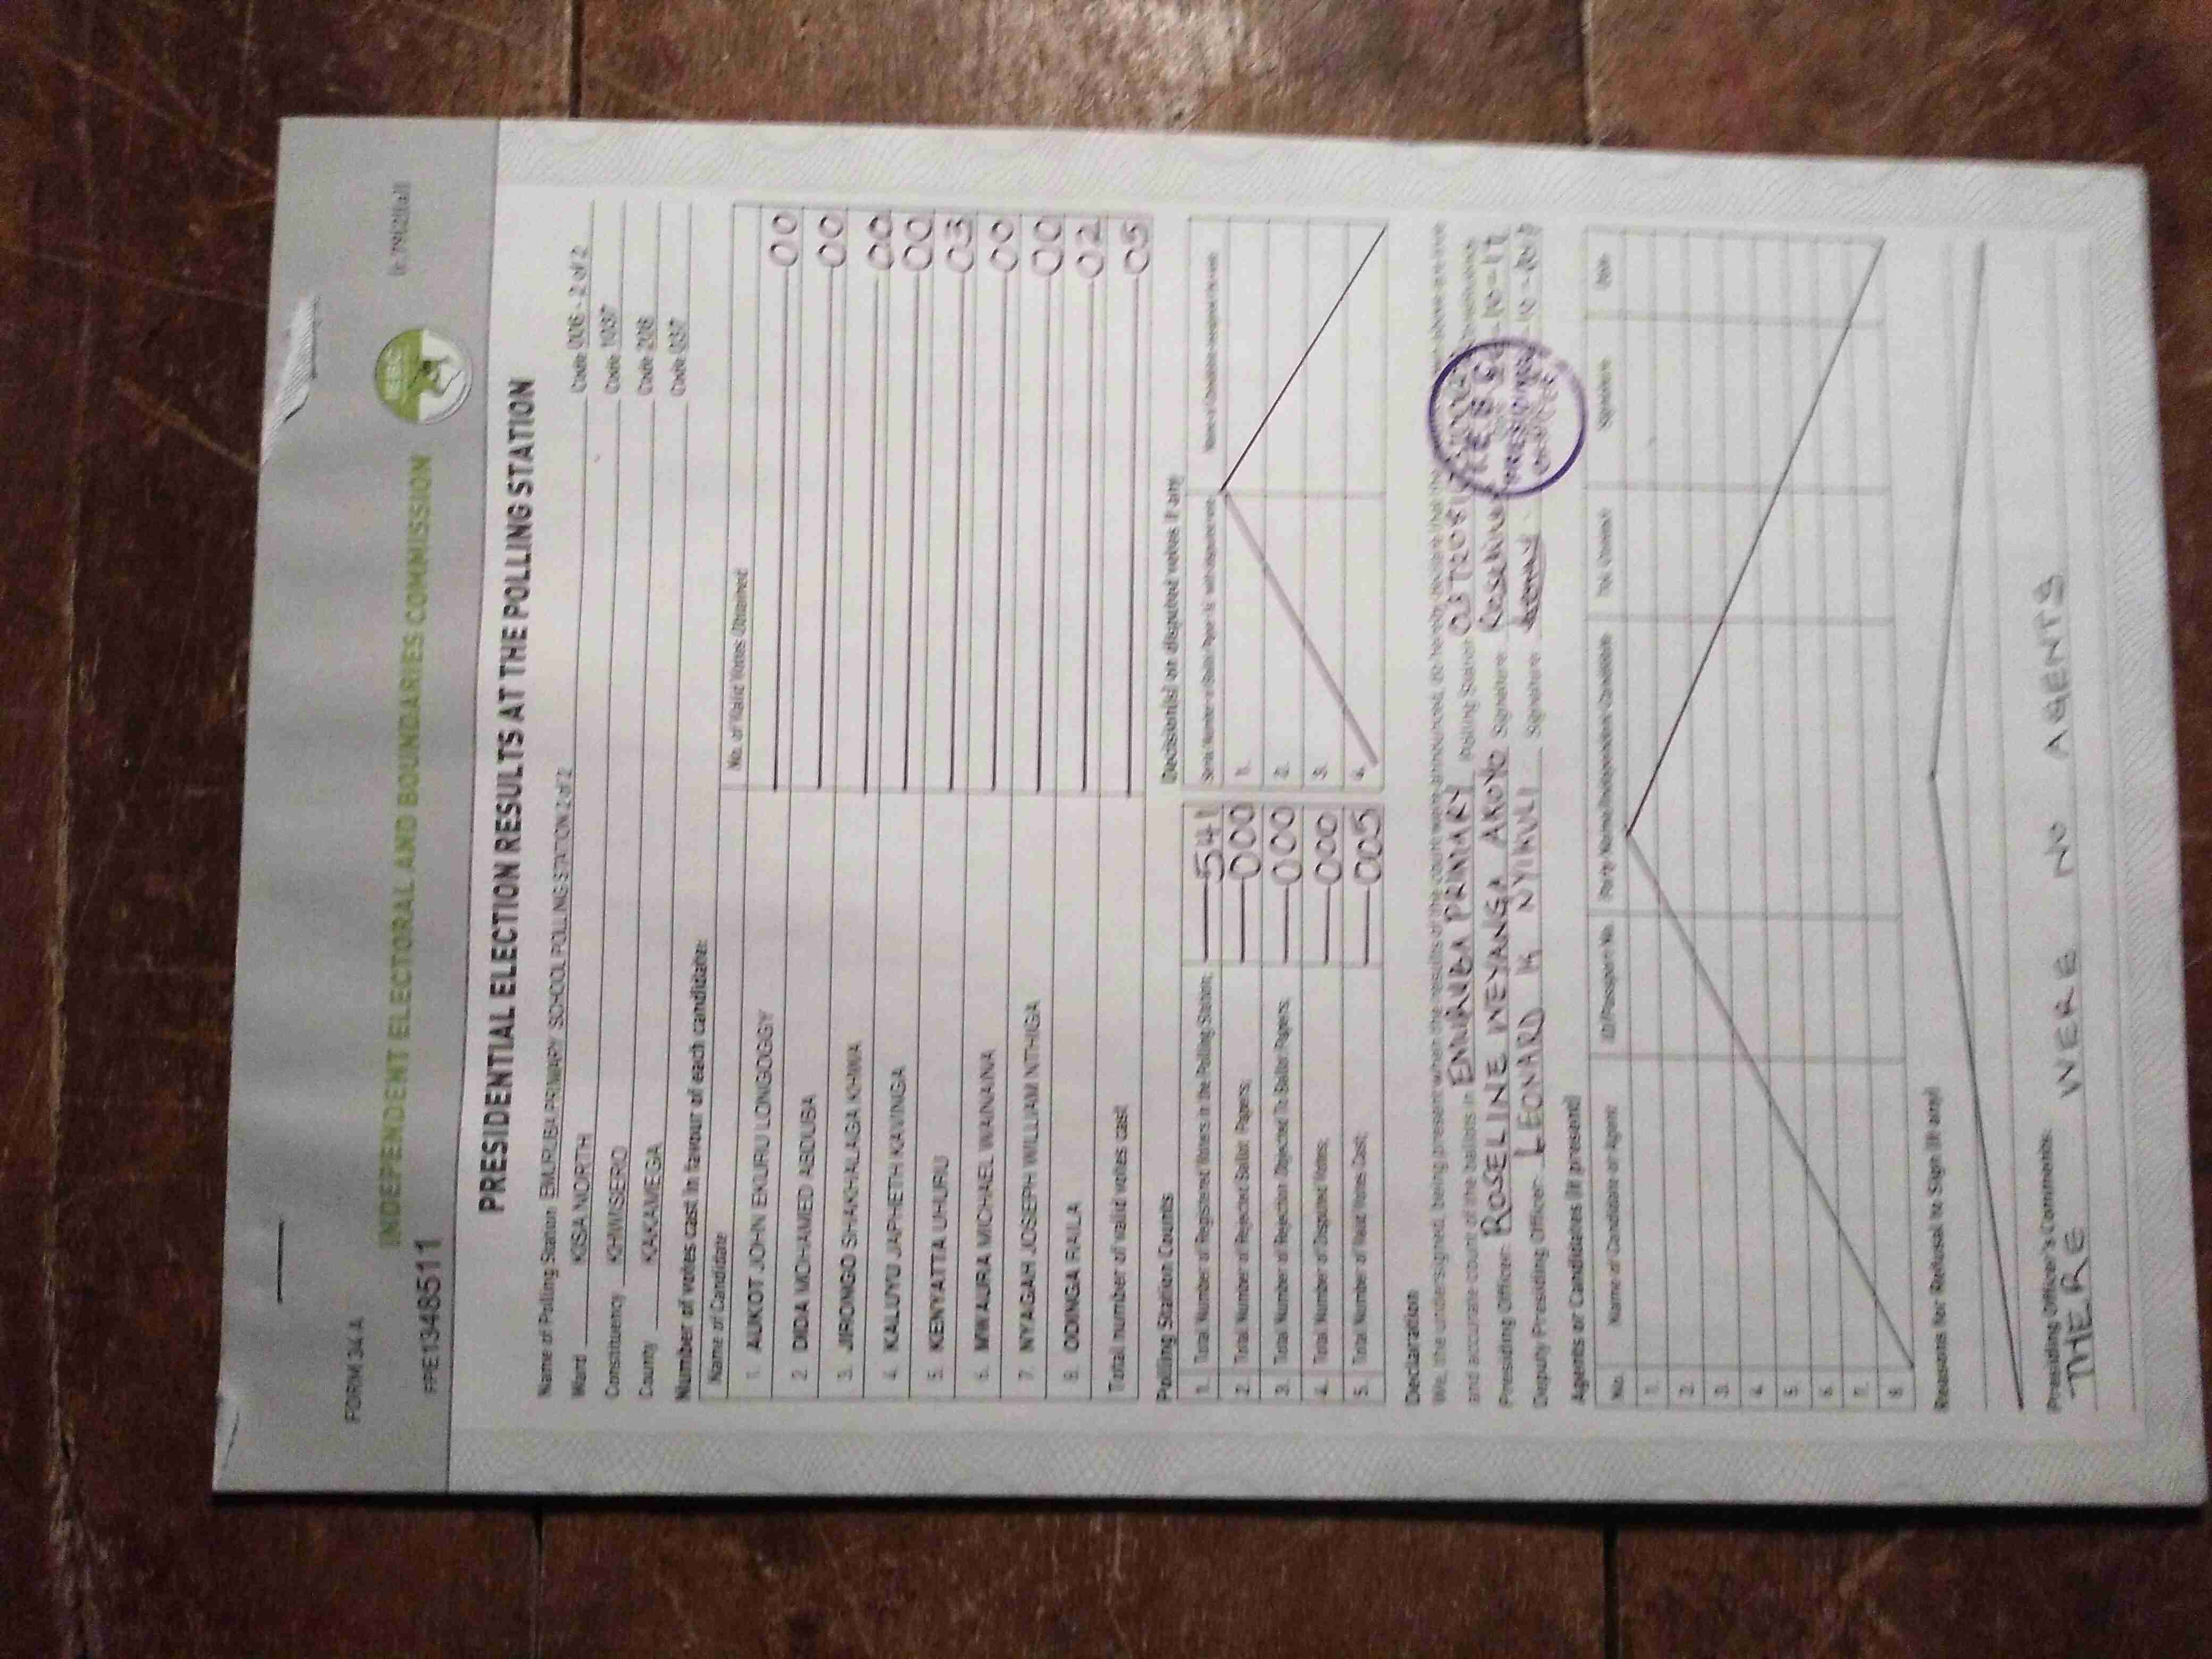 FORM 34 A
INDEPENDENT ELECTORAL AND BOUNDARIES COMMISSION
IEBC
PRESIDENTIAL ELECTION RESULTS AT THE POLLING STATION
Name of Polling Station EMURUBA PRIMARY SCHOOL POLLING STATION 2 of 2 Code 006 - 2 of 2
Ward KISA NORTH Code 1037
Constituency KHWISERO Code 208
County KAKAMEGA Code 037
Number of votes cast in favour of each candidate:
Name of Candidate No. of Valid Votes Obtained
1. AUKOT JOHN EKURU LONGOGGY 00
2. DIDA MOHAMED ABDUBA 00
3. JIRONGO SHAKHALAGA KHWA 00
4. KALUYU JAPHETH KAVINGA 00
5. KENYATTA UHURU 03
6. MWAURA MICHAEL WAINAINA 00
7. NYAGAH JOSEPH WILLIAM NTHIGA 00
8. ODINGA RAILA 02
Total number of valid votes cast 05
Polling Station Counts
1. Total Number of Registered Voters in the Polling Station: 541
2. Total Number of Rejected Ballot Papers: 000
3. Total Number of Rejection Objected To Ballot Papers: 000
4. Total Number of Disputed Votes: 000
5. Total Number of Valid Votes Cast: 005
Decision(s) on disputed votes if any
1.
2.
3.
4.
Declaration
We, the undersigned, being present when the results of the count were announced, do hereby declare that the
and accurate count of the ballots in EMURUBA PRIMARY Polling Station
Presiding Officer: ROSELINE Signature:
Deputy Presiding Officer: LEONARD K NYIKULI Signature:
PRESIDING
OFFICER
Agents or Candidates (if present)
No. Name of Candidate or Agent ID/Passport No. Party Name/Independent Candidate Tel. Contact Signature Date
1.
2.
3.
4.
5.
6.
7.
8.
Reasons for Refusal to Sign (if any)
Presiding Officer's Comments:
THERE WERE NO AGENTS